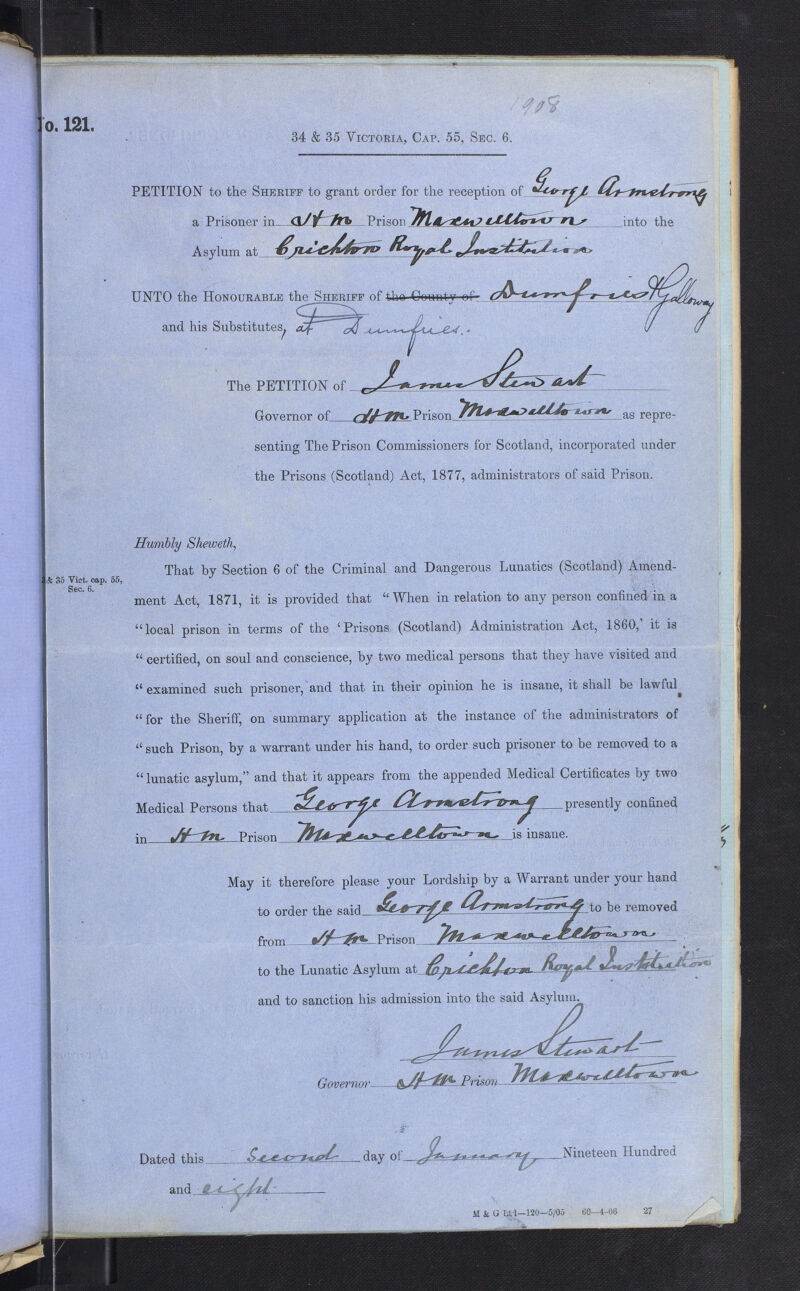 1908
o. 121.
34 & 35 VICTORIA, CAP. 55, SEC. 6.
PETITION to the SHERIFF to grant order for the reception of George Armstrong
a Prisoner in HM Prison Maxwelltown into the
Asylum at Crichton Royal Institution
UNTO the HONOURABLE the SHERIFF of the County of Dumfries & Galloway
and his Substitutes, at Dumfries.
The PETITION of James Stewart
Governor of HM Prison Maxwelltown as repre-
senting The Prison Commissioners for Scotland, incorporated under
the Prisons (Scotland) Act, 1877, administrators of said Prison.
Humbly Sheweth,
& 35 Vict. cap. 55,
Sec. 6.
That by Section 6 of the Criminal and Dangerous Lunatics (Scotland) Amend-
ment Act, 1871, it is provided that "When in relation to any person confined in a
"local prison in terms of the 'Prisons (Scotland) Administration Act, 1860,' it is
"certified, on soul and conscience, by two medical persons that they have visited and
"examined such prisoner, and that in their opinion he is insane, it shall be lawful
"for the Sheriff, on summary application at the instance of the administrators of
"such Prison, by a warrant under his hand, to order such prisoner to be removed to a
"lunatic asylum," and that it appears from the appended Medical Certificates by two
Medical Persons that George Armstrong presently confined
in HM Prison Maxwelltown is insane.
May it therefore please your Lordship by a Warrant under your hand
to order the said George Armstrong to be removed
from HM Prison Maxwelltown
to the Lunatic Asylum at Crichton Royal Institution
and to sanction his admission into the said Asylum.
James Stewart
Governor HM Prison Maxwelltown
Dated this second day of January Nineteen Hundred
and eight
M & G Ltd—120—5/05 60—4-06 27